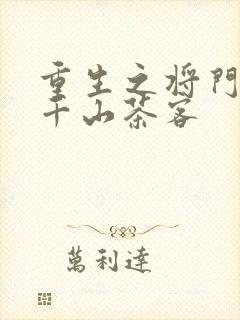 重生之将門
千山茶客
萬利達